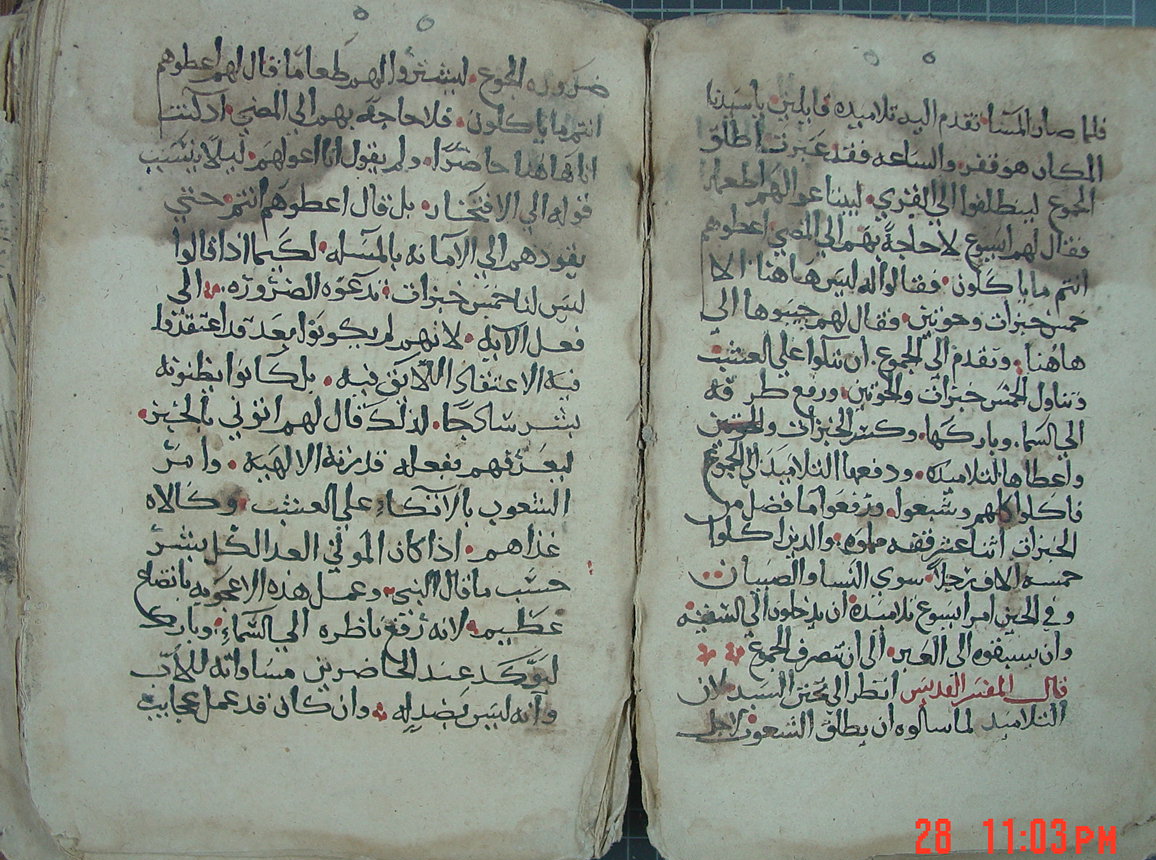 فلما صار المسا تقدم اليه تلاميذه قايلين يا سيدنا
المكان هو قفر والساعه فقد عبرت اطلق
الجموع لينطلقوا الي القري ليبتاعوا لهم اطعمه
فقال لهم ايسوع لا حاجة بهم الي المضي اعطوهم
انتم ما ياكلون فقالوا له ليس هاهنا الا
خمس خبزات وحوتين فقال لهم جيبوها الي
هاهنا وتقدم الي الجموع ان تتكوا علي العشب
وتناول الخمس خبزات والحوتين ورفع طرفه
الي السما وباركها وكسر الخبزات والحوتين
واعطاها التلاميذ ودفعها التلاميذ الي الجموع
فاكلوا كلهم وشبعوا ورفعوا ما فضل من
الخبزات اثنا عشر قفه مملوه والذين اكلوا
خمسه الاف رجلا سوي النسا والصبيان
وفي الحين امر ايسوع تلاميذه ان يدخلون الي السفينه
وان يسبقوه الي العبر الي ان تنصرف الجموع
قال المفسر القديس انظر الي تحنن السيد لان
التلاميذ لما سالوه ان يطلق الشعوب لاجل
ضروره الجوع ليشتروا لهم طعاما قال لهم اعطوهم
انتم ما ياكلون فلا حاجة بهم الي المضي اذ كنت
انا هاهنا حاضرا ولم يقول انا اعولهم ليلا ينسب
قوله الي الافتخار بل قال اعطوهم انتم حتي
يقودهم الي الامانه بالمسله لكيما اذا قالوا
ليس لنا خمس خبزات تدعوه الضروره الي
فعل الايه لانهم لم يكونوا بعد قد اعتقدوا
فيه الاعتقاد اللايق فيه بل كانوا يظنونه
بشر ساكجا لذلك قال لهم اتوني بالخبز
ليعرفهم بفعله قدرته الالهيه وامر
الشعوب بالاتكاء علي العشب وكالاه
غذاهم اذا كان الموتي الغدا لكل بشر
حسب ما قال النبي وعمل هذه الاعجوبه باتضاع
عظيم لانه رفع ناظره الي السماء وبارك
ليوكد عند الحاضرين مساواته للاب
وانه ليس بضد له وان كان قد عمل عجايب
28 11:03 PM